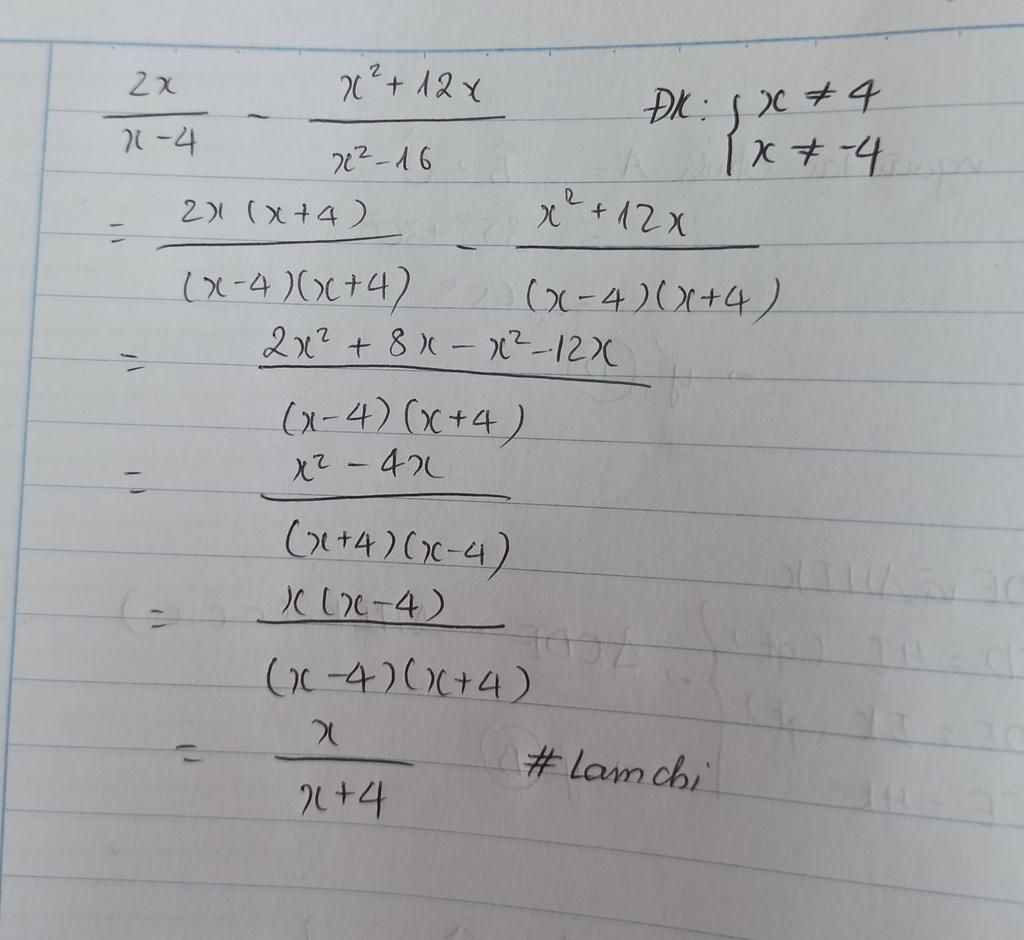 2x/(x-4) - (x²+12x)/(x²-16) ĐK: { x ≠ 4
x ≠ -4
= 2x(x+4)/((x-4)(x+4)) - (x²+12x)/((x-4)(x+4))
= (2x²+8x-x²-12x)/((x-4)(x+4))
= (x²-4x)/((x+4)(x-4))
= x(x-4)/((x-4)(x+4))
= x/(x+4) # Lamchi